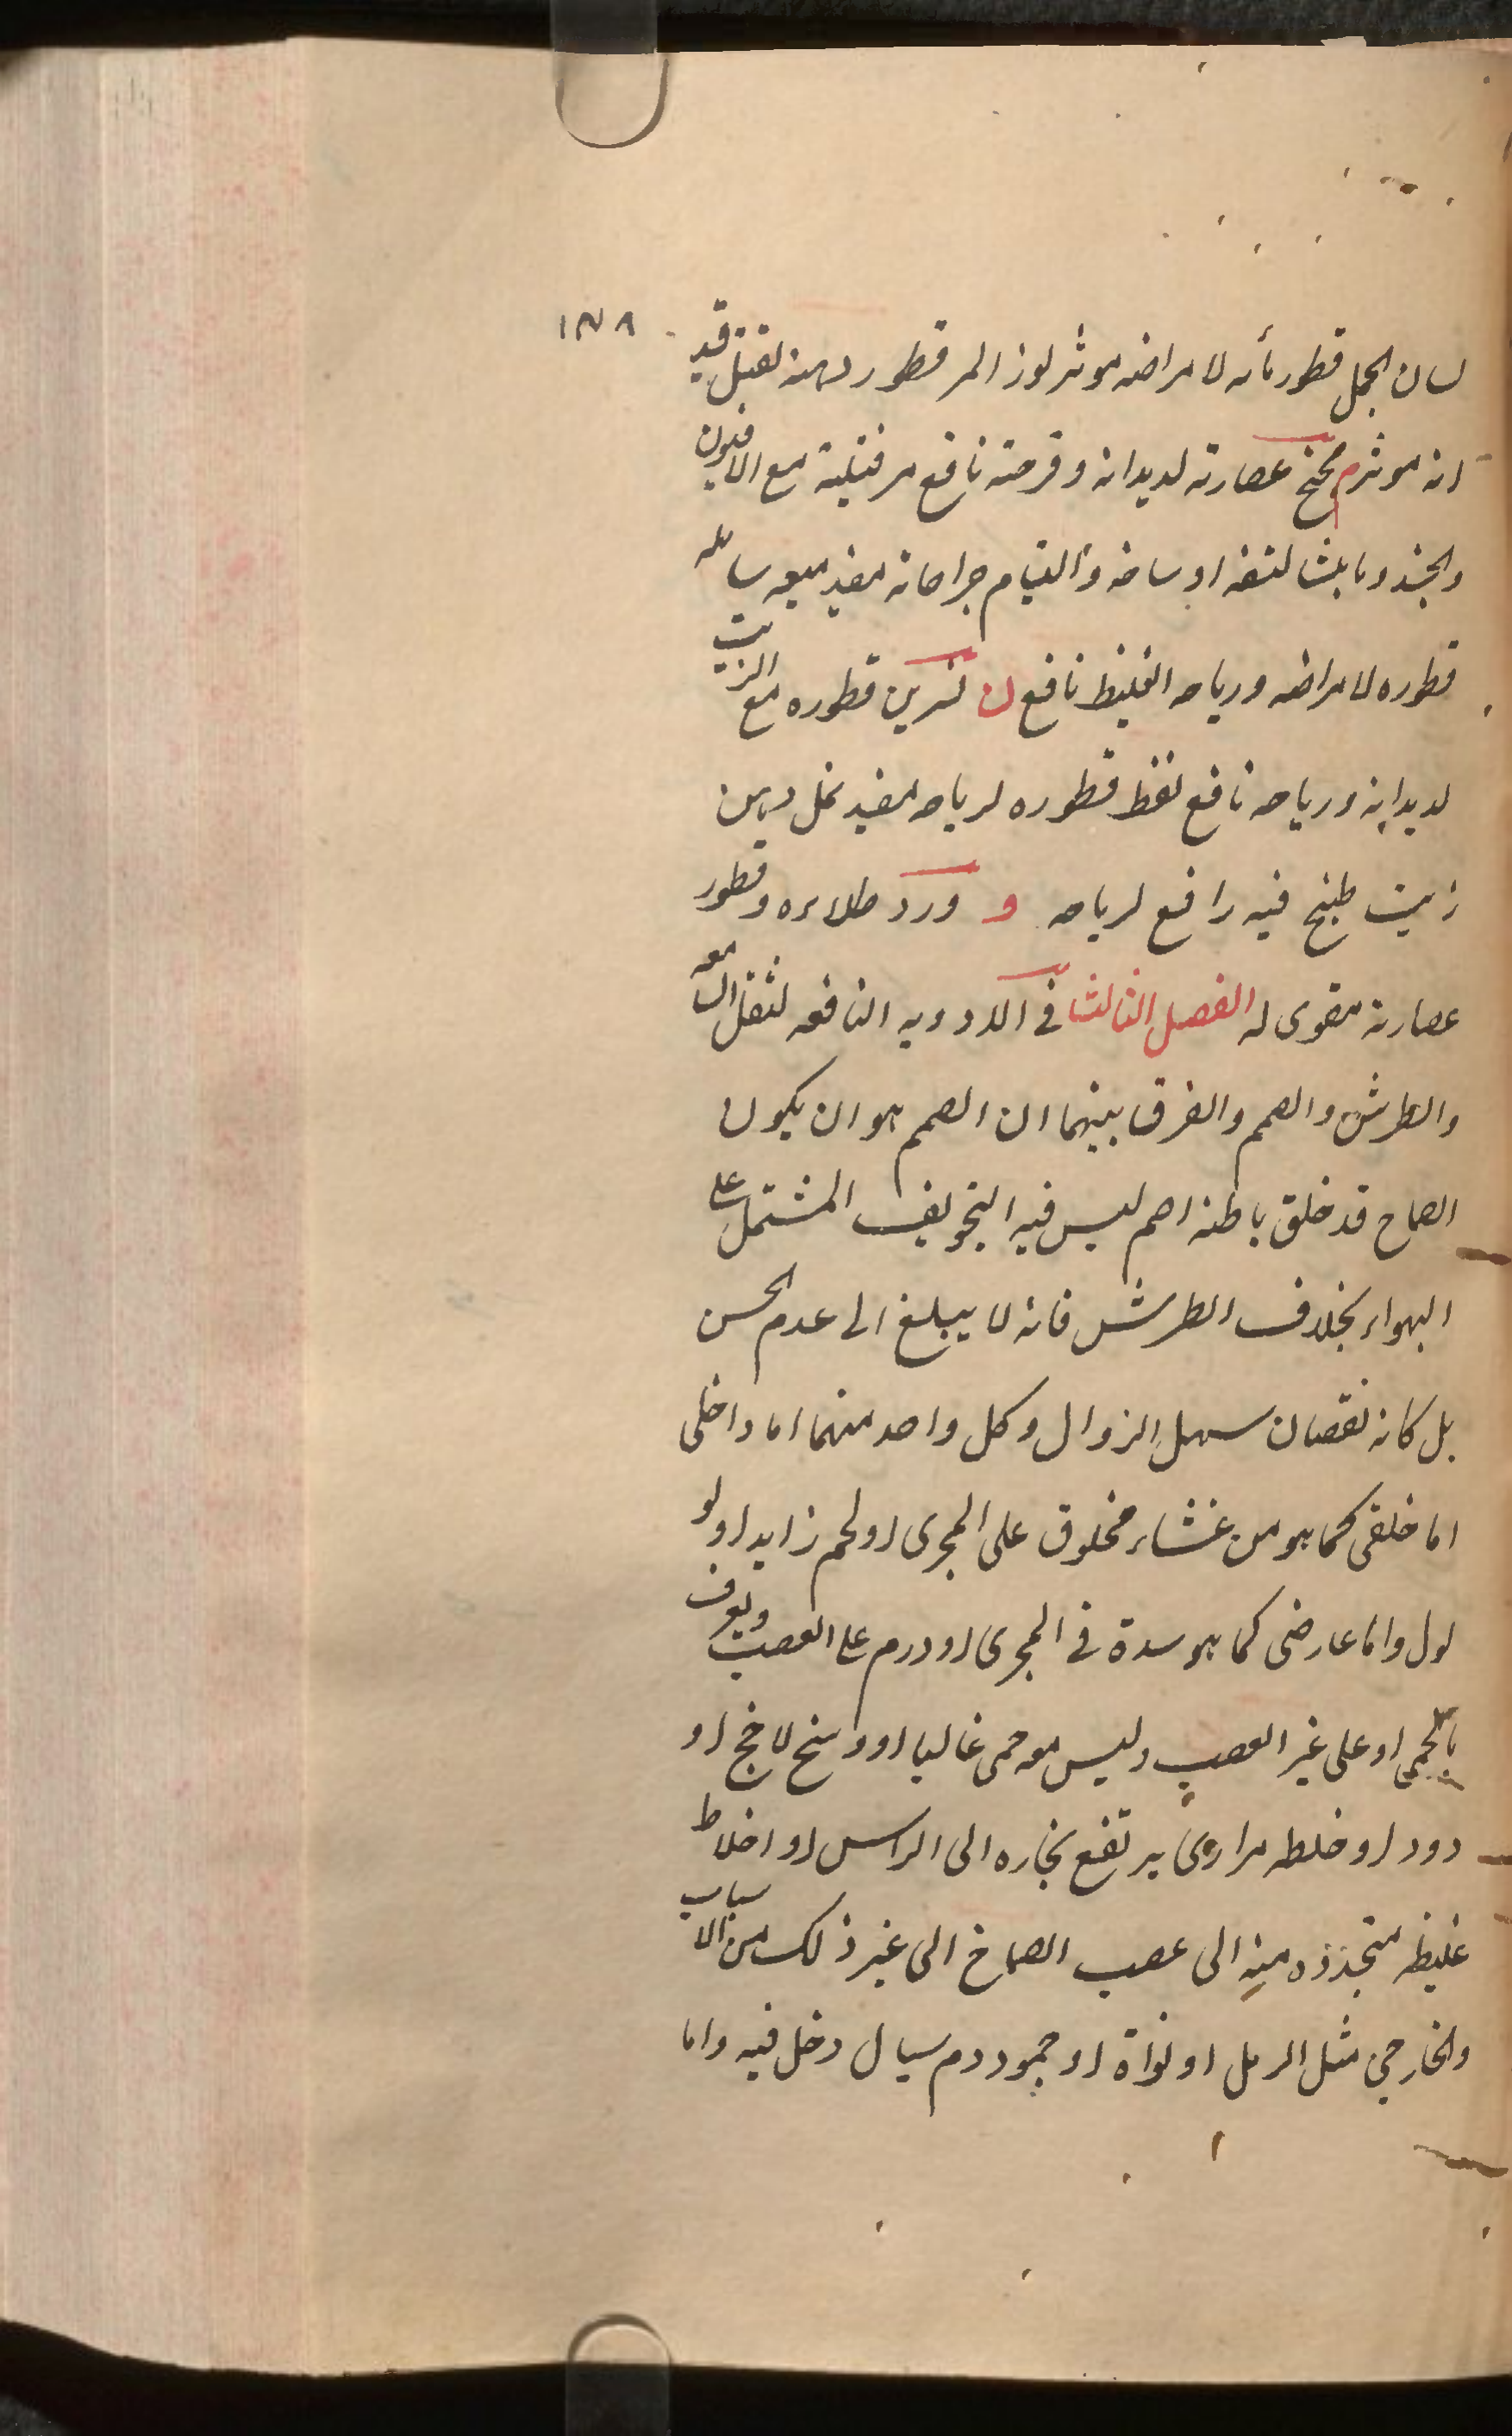 ١٣٨
لسان الحمل قطور مائه لامراضه موثر لوز المر قطور دهنه لقتل قيد
انه موثر م مخ عصارته لديدانه وقرحته نافع مر فتيلة مع الافيون
والجند وما لنفه اوساخه والتيام جراحاته مفيد ميعه سائله
قطوره لامراضه ورياحه الغليظ نافع ن نسرين قطوره مع الزيت
لديدانه ورياحه نافع نفط قطوره لرياحه مفيد نمل دهن
زيت طبخ فيه رافع لرياحه و ورد طلاءه وقطور
عصارته مقوى له الفصل الثالث فى الادويه النافعه لثقل السمع
والطرش والصمم والفرق بينهما ان الصمم هو ان يكون
الصماخ قد خلق باطنه اصم ليس فيه التجويف المشتمل على
الهواء بخلاف الطرش فانه لا يبلغ الى عدم الحس
بل كانه نقصان سهل الزوال وكل واحد منهما اما داخلى
اما خلقى كما هو من غشاء مخلوق على المجرى او لحم زايد او لو
لول واما عارضى كما هو سدة فى المجرى او ورم على العصب ويعرف
بالحمى او على غير العصب وليس معه حمى غالبا او وسخ لاخج او
دود او خلطه مرارى يرتفع بخاره الى الراس او اخلاط
غليظه متجذذه منه الى عصب الصماخ الى غير ذلك من الاسباب
والخارجى مثل الرمل او نواة او جمود دم سيال دخل فيه واما